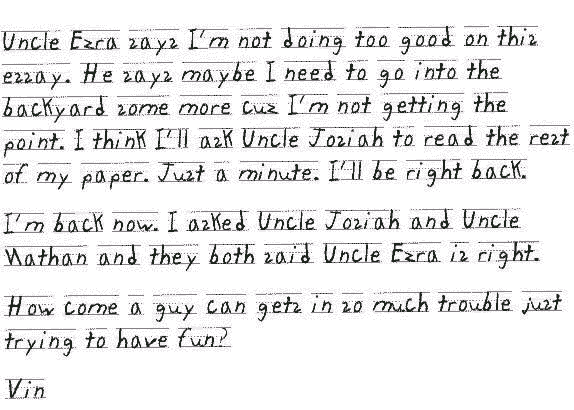 Uncle Ezra says I'm not doing too good on this
essay. He says maybe I need to go into the
backyard some more cus I'm not getting the
point. I think I'll ask Uncle Josiah to read the rest
of my paper. Just a minute. I'll be right back.
I'm back now. I asked Uncle Josiah and Uncle
Nathan and they both said Uncle Ezra is right.
How come a guy can gets in so much trouble just
trying to have fun?
Vin